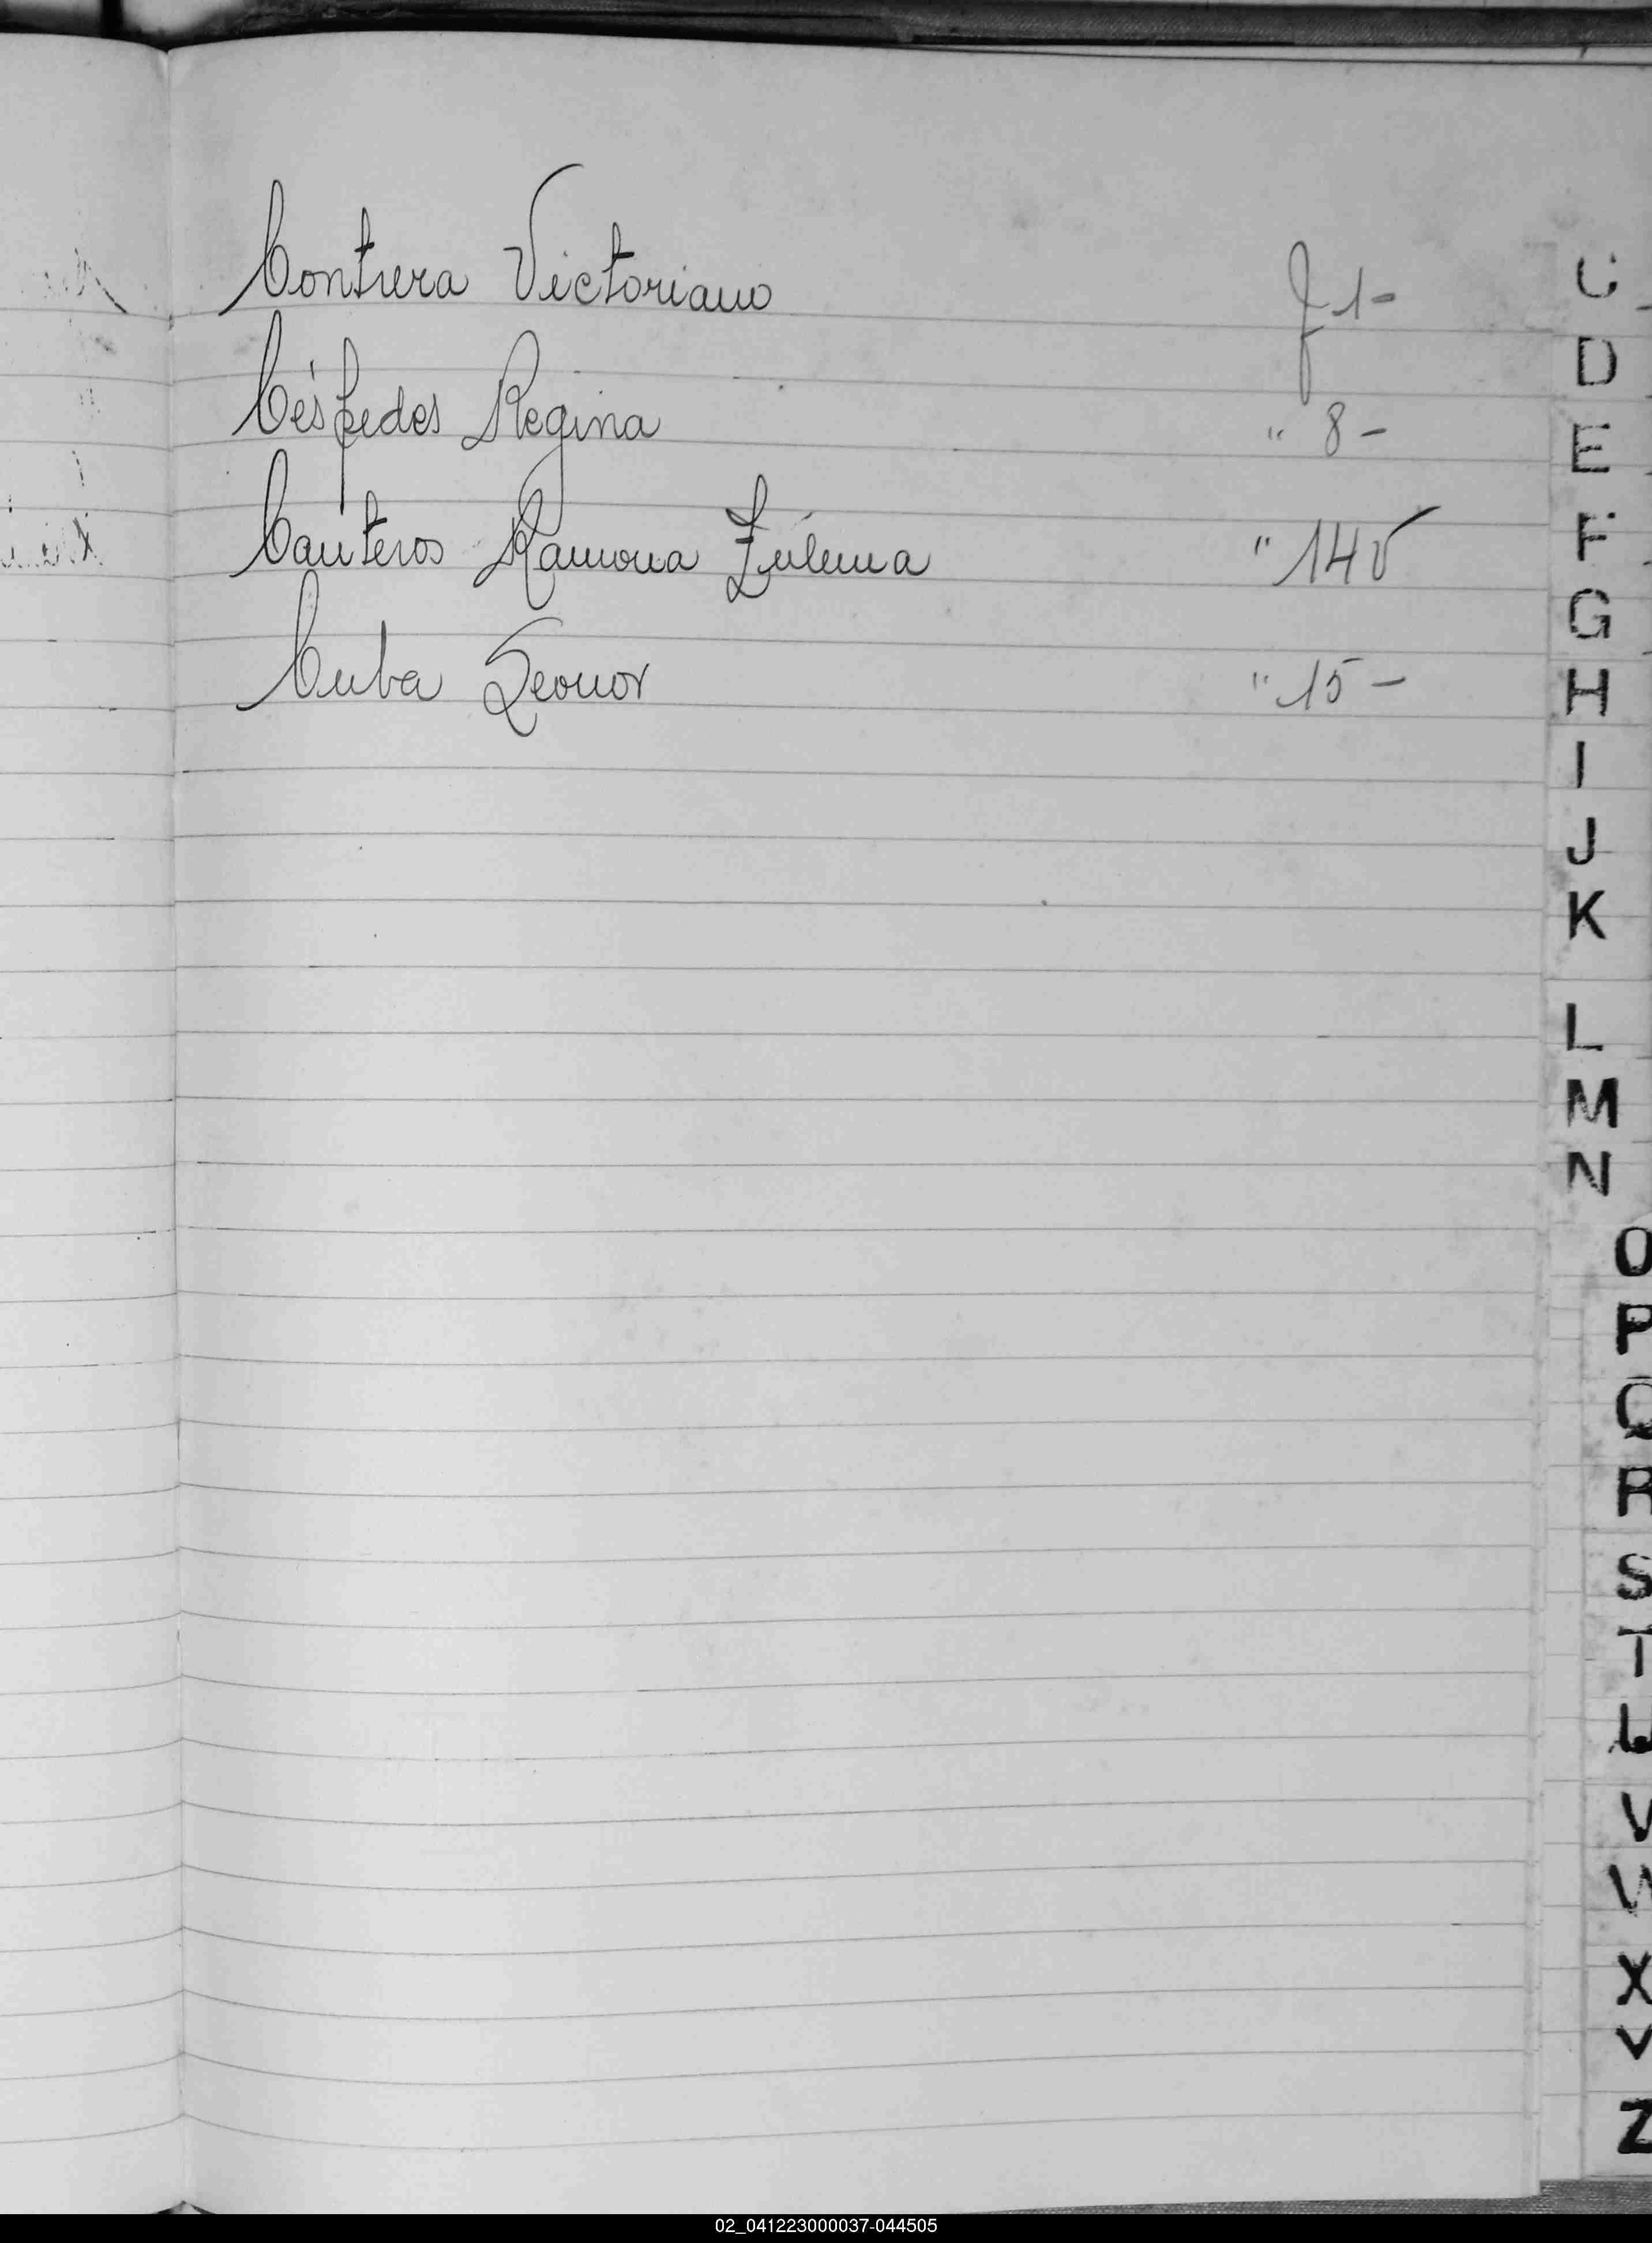 Contrera Victoriano f 1-
Céspedes Regina " 8-
Canteros Ramona Zulema " 14v
Cuba Leonor " 15-
C
D
E
F
G
H
I
J
K
L
M
N
O
P
Q
R
S
T
U
V
W
X
Y
Z
02_041223000037-044505